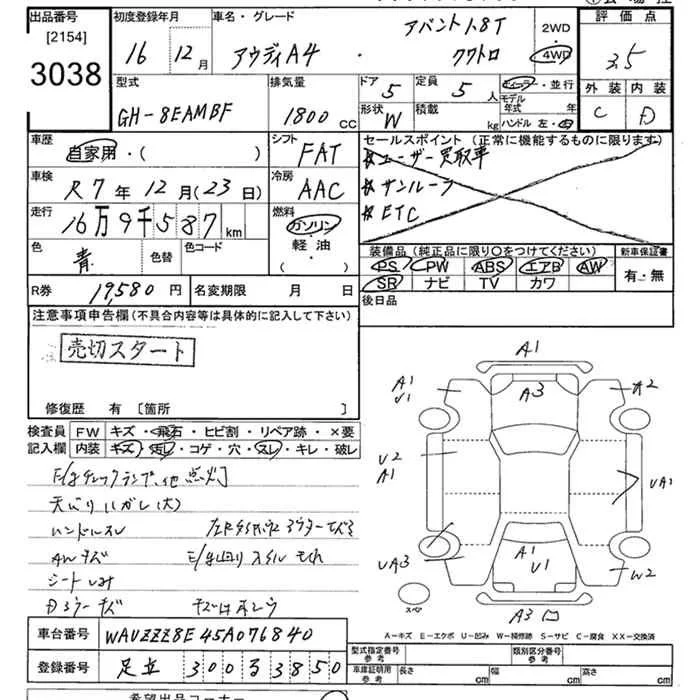 出品番号
[2154]
3038
初度登録年月
16 年 12 月
車名・グレード
アウディA4
アバント 1.8T
クワトロ
2WD
・
4WD
評価点
3.5
外装 内装
C D
型式
GH-8EAMBF
排気量
1800 CC
ドア
5
定員
5 人
形状
W
積載
kg
ディーラー・並行
モデル年式 年
ハンドル 左・右
車歴
自家用・( )
シフト
FAT
セールスポイント(正常に機能するものに限ります)
★ユーザー買取車
★サンルーフ
★ETC
車検
R7年12月(23日)
冷房
AAC
走行
16万9千587 km
燃料
ガソリン
・
軽油
( )
色
青
色替
色コード
装備品(純正品に限り○をつけてください)
PS PW ABS エアB AW
SR ナビ TV カワ
新車保証書
有・無
R券 19,580 円
名変期限 月 日
後日品
注意事項申告欄(不具合内容等は具体的に記入して下さい)
売切スタート
修復歴 有 [箇所 ]
検査員記入欄
FW キズ・飛石・ヒビ割・リペア跡・×要
内装 キズ・汚レ・コゲ・穴・スレ・キレ・破レ
E/gチェックランプ、他点灯
天バリハガレ(大)
ハンドルスレ
AWキズ
シートしみ
Dミラーキズ
A1
A3
A1
U1
A2
U2
A1
UA1
UA3
A1
U1
W2
スペア
A3
A-キズ E-エクボ U-凹み W-補修跡 S-サビ C-腐食 XX-交換済
車台番号 WAUZZZ8E45A076840
登録番号 足立 300 る 3850
型式指定番号
参考
類別区分番号
参考
車庫証明用
参考
長さ cm 幅 cm 高さ cm
希望出品コーナー